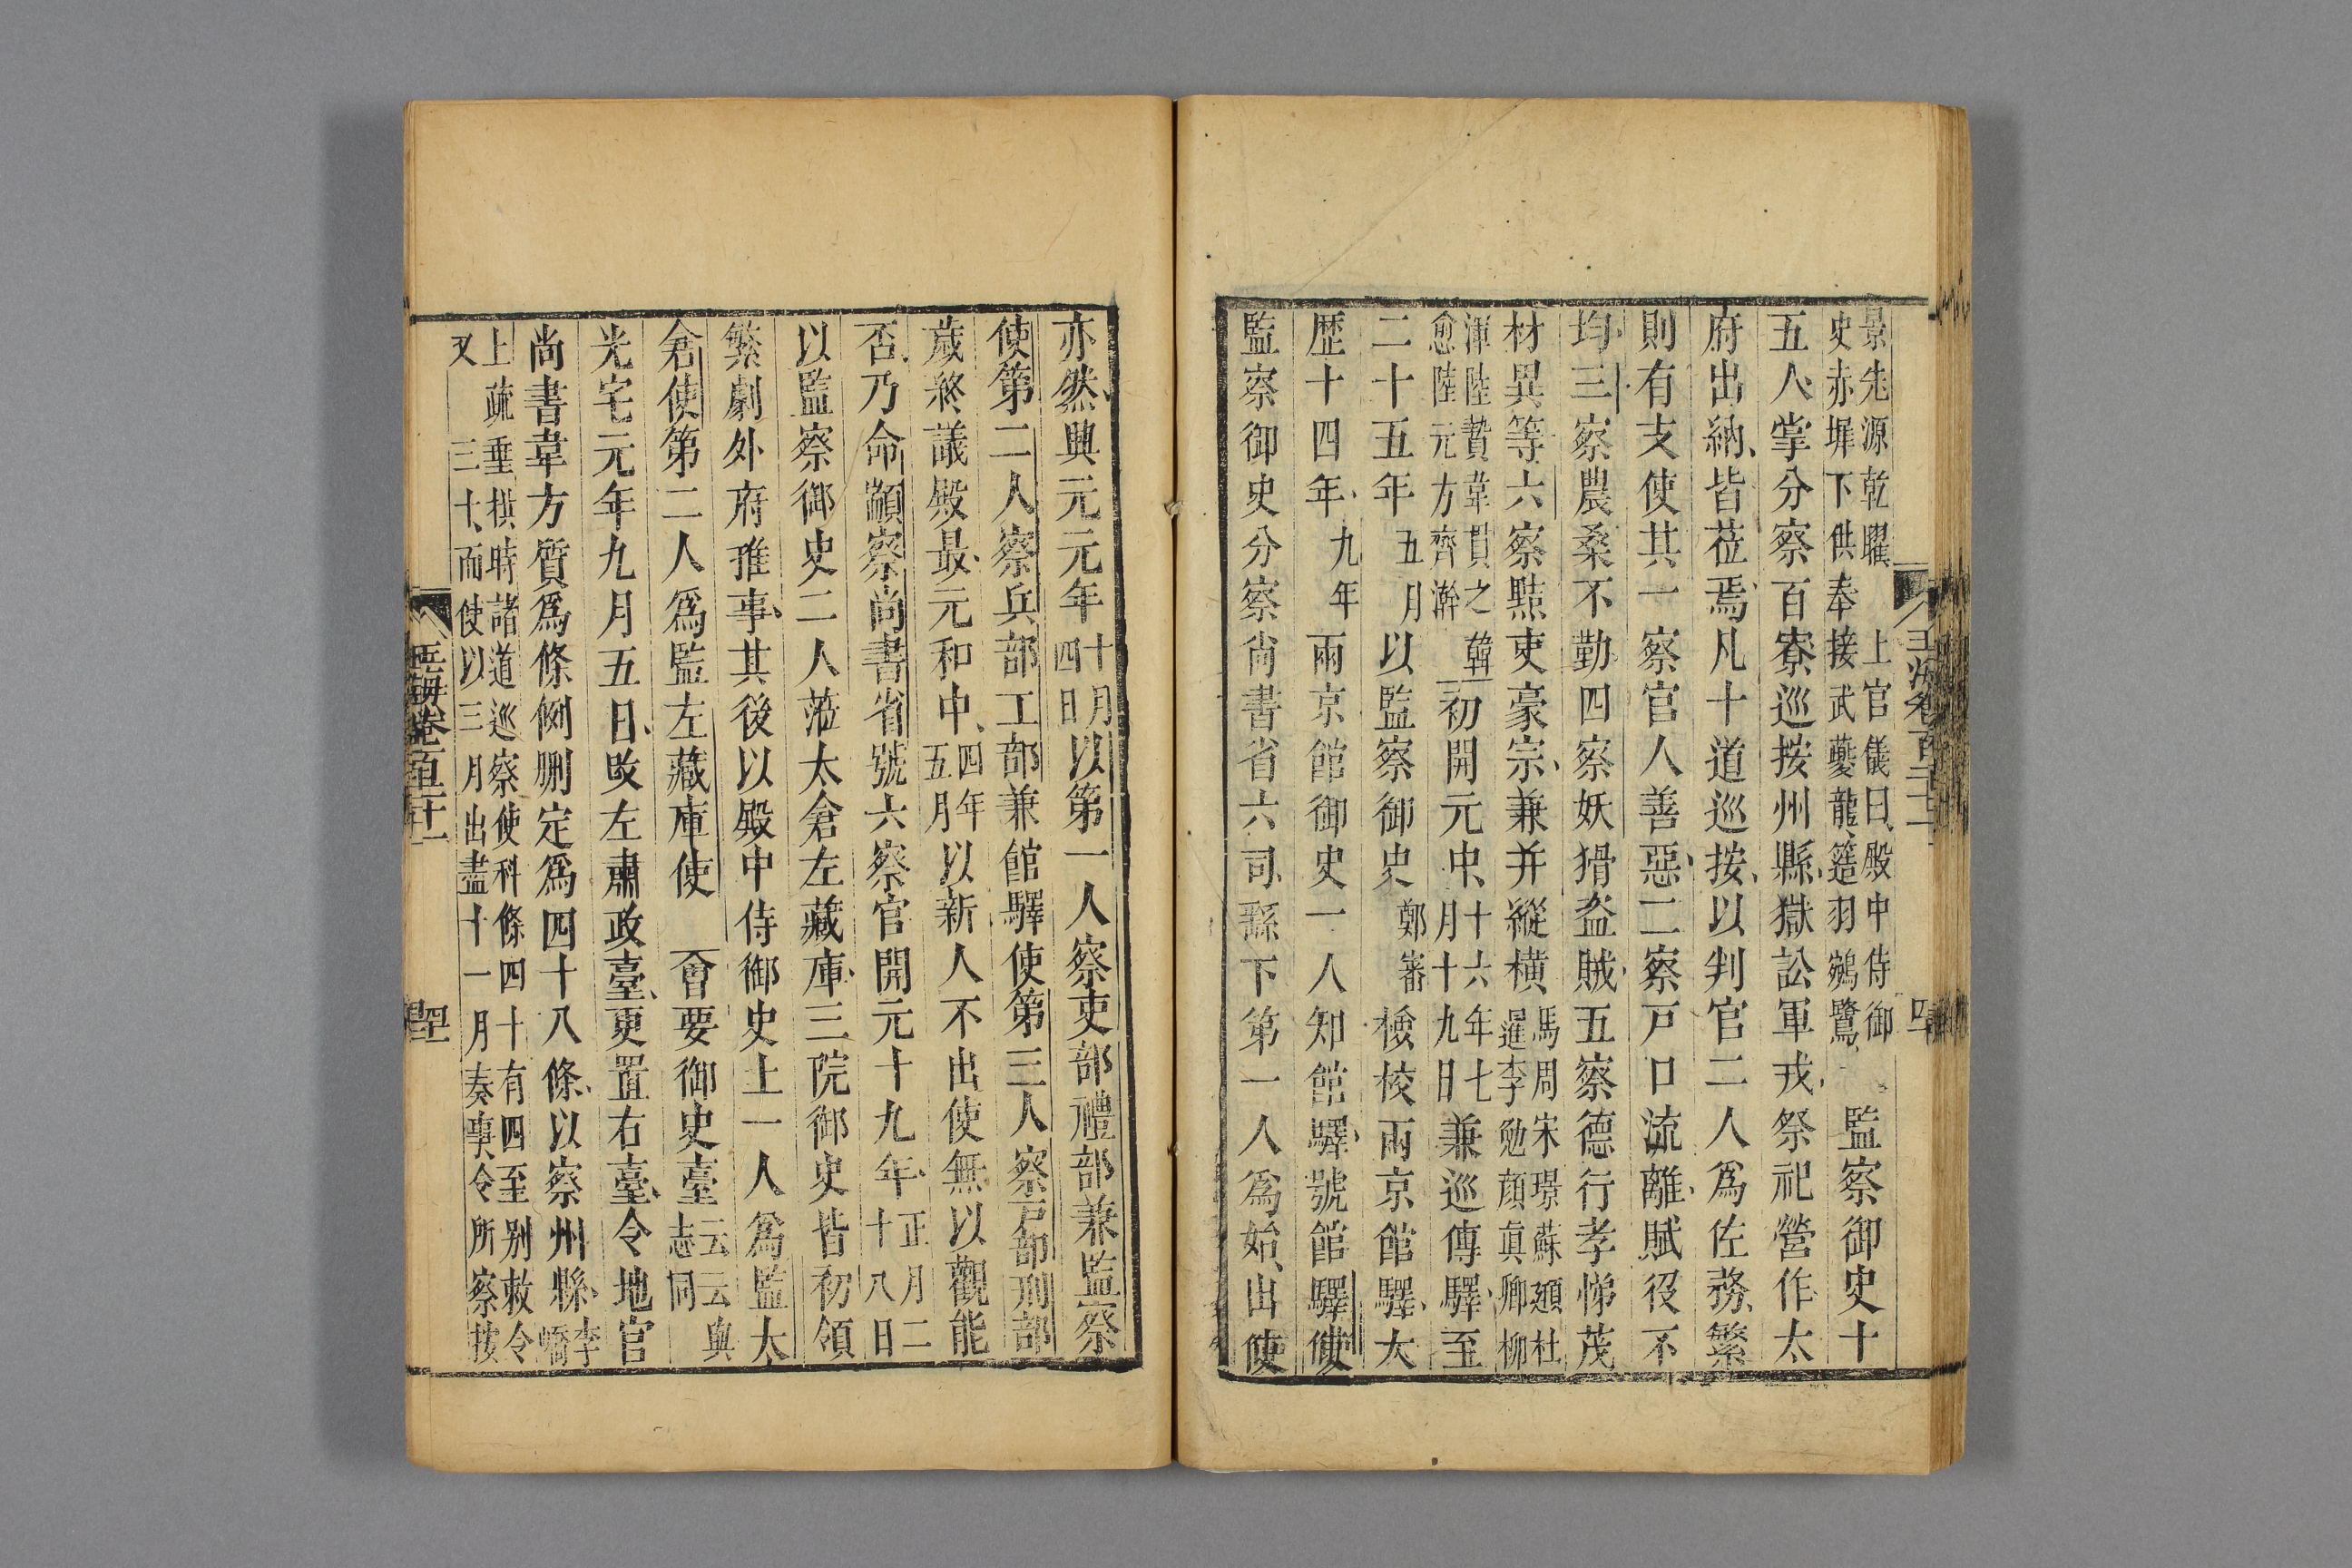 景先源乾曜 上官儀曰殿中侍御
史赤墀下供奉接武夔龍簉羽鵷鷺 監察御史十
五人掌分察百寮巡按州縣獄訟軍戎祭祀營作太
府出納皆莅焉凡十道巡按以判官二人爲佐務繁
則有支使其一察官人善惡二察戸口流離賦役不
均三察農桑不勤四察妖猾盗賊五察德行孝悌茂
材異等六察黠吏豪宗兼并縱横馬周宋璟蘇頲杜
暹李勉顔眞卿柳
渾陸贄韋貫之韓
愈陸元方齊澣 初開元中十六年七
月十九日兼巡傳驛至
二十五年五月以監察御史鄭審檢校兩京館驛大
歴十四年九年兩京館御史一人知館驛號館驛使
監察御史分察尚書省六司繇下第一人爲始出使
亦然興元元年十月
四日以第一人察吏部禮部兼監察
使第二人察兵部工部兼館驛使第三人察戸部刑部
歳終議殿最元和中四年
五月以新人不出使無以觀能
否乃命顓察尚書省號六察官開元十九年正月二
十八日
以監察御史二人莅太倉左藏庫三院御史皆初領
繁劇外府推事其後以殿中侍御史上一人爲監太
倉使第二人爲監左藏庫使 會要御史臺云云與
志同
光宅元年九月五日改左肅政臺更置右臺令地官
尚書韋方質爲條例删定爲四十八條以察州縣李
嶠
上疏垂拱時諸道巡察使科條四十有四至别敕令
又 三十而使以三月出盡十一月奏事令所察按
玉海卷百二十一